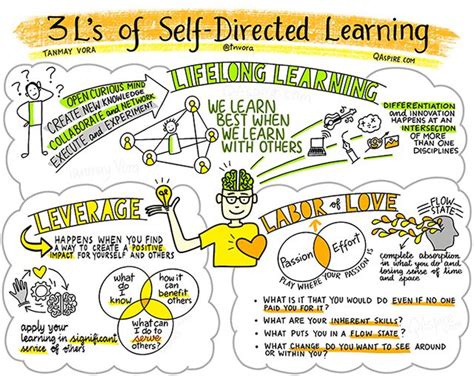 3 L's of Self-Directed Learning
TANMAY VORA
@tnvora
QASPIRE.COM
LIFELONG LEARNING
OPEN CURIOUS MIND
CREATE NEW KNOWLEDGE
COLLABORATE and NETWORK
EXECUTE and EXPERIMENT
WE LEARN
BEST WHEN
WE LEARN
WITH OTHERS
DIFFERENTIATION
and INNOVATION
HAPPENS AT AN
INTERSECTION
OF MORE
THAN ONE
DISCIPLINES
Tanmay Vora
LEVERAGE
HAPPENS WHEN YOU FIND
A WAY TO CREATE A POSITIVE
IMPACT FOR YOURSELF AND OTHERS
what
do I
know?
how it can
benefit
others?
what can
I do to
serve
others?
apply your
learning in significant
service of others
LABOR of LOVE
Passion
Effort
PLAY WHERE YOUR PASSION IS
FLOW-
STATE
complete absorption
in what you do and
losing sense of time
and space
WHAT IS IT THAT YOU WOULD DO EVEN IF NO ONE
PAID YOU FOR IT?
WHAT ARE YOUR INHERENT SKILLS?
WHAT PUTS YOU IN A FLOW STATE?
WHAT CHANGE DO YOU WANT TO SEE AROUND
OR WITHIN YOU?
QAspire.com